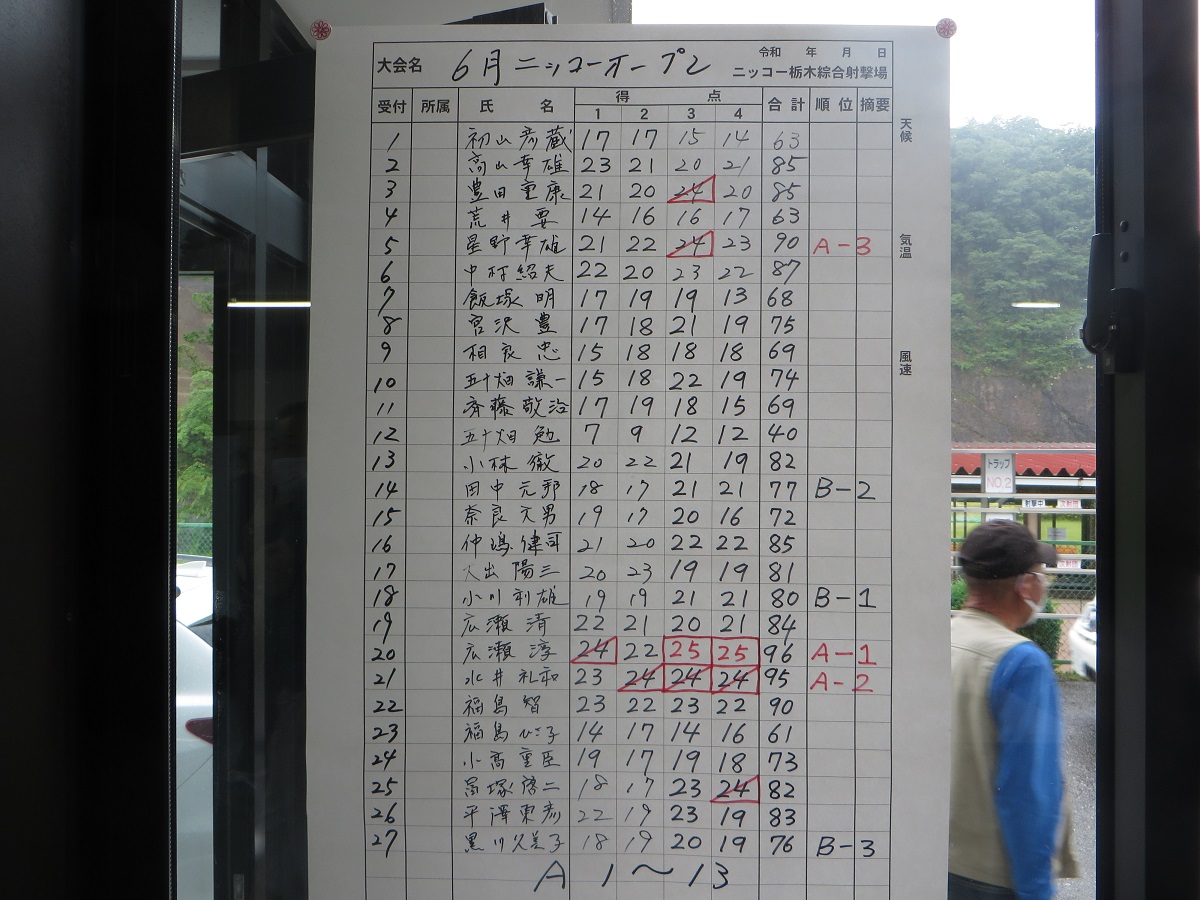 大会名 6月ニッコーオープン 令和 年 月 日
ニッコー栃木綜合射撃場
受付 所属 氏 名 得 点 合計 順位 摘要
1 2 3 4
天候
1 初山彦蔵 17 17 15 14 63
2 高山幸雄 23 21 20 21 85
3 豊田重康 21 20 24 20 85
4 荒井要 14 16 16 17 63
5 星野幸雄 21 22 24 23 90 A-3
気温
6 中村紹夫 22 20 23 22 87
7 飯塚明 17 19 19 13 68
8 宮沢豊 17 18 21 19 75
9 相良忠 15 18 18 18 69
風速
10 五十畑謙一 15 18 22 19 74
11 斉藤敬治 17 19 18 15 69
12 五十畑勉 7 9 12 12 40
13 小林徹 20 22 21 19 82
14 田中元 18 17 21 21 77 B-2
15 奈良文男 19 17 20 16 72
16 仲嶋健司 21 20 22 22 85
17 大出陽三 20 23 19 19 81
18 小川利雄 19 19 21 21 80 B-1
19 広瀬清 22 21 20 21 84
20 広瀬淳 24 22 25 25 96 A-1
21 水井礼和 23 24 24 24 95 A-2
22 福島智 23 22 23 22 90
23 福島ひさ子 14 17 14 16 61
24 小高重臣 19 17 19 18 73
25 塚啓二 18 17 23 24 82
26 平澤東彦 22 19 23 19 83
27 黒川久美子 18 19 20 19 76 B-3
A 1〜13
トラップ
NO.2
射撃中